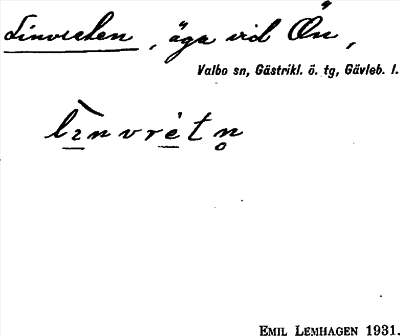 Linvreten, äga vid Ön,
Valbo sn, Gästrikl. ö. tg, Gävleb. l.
lìnvrètn̥
EMIL LEMHAGEN 1931.